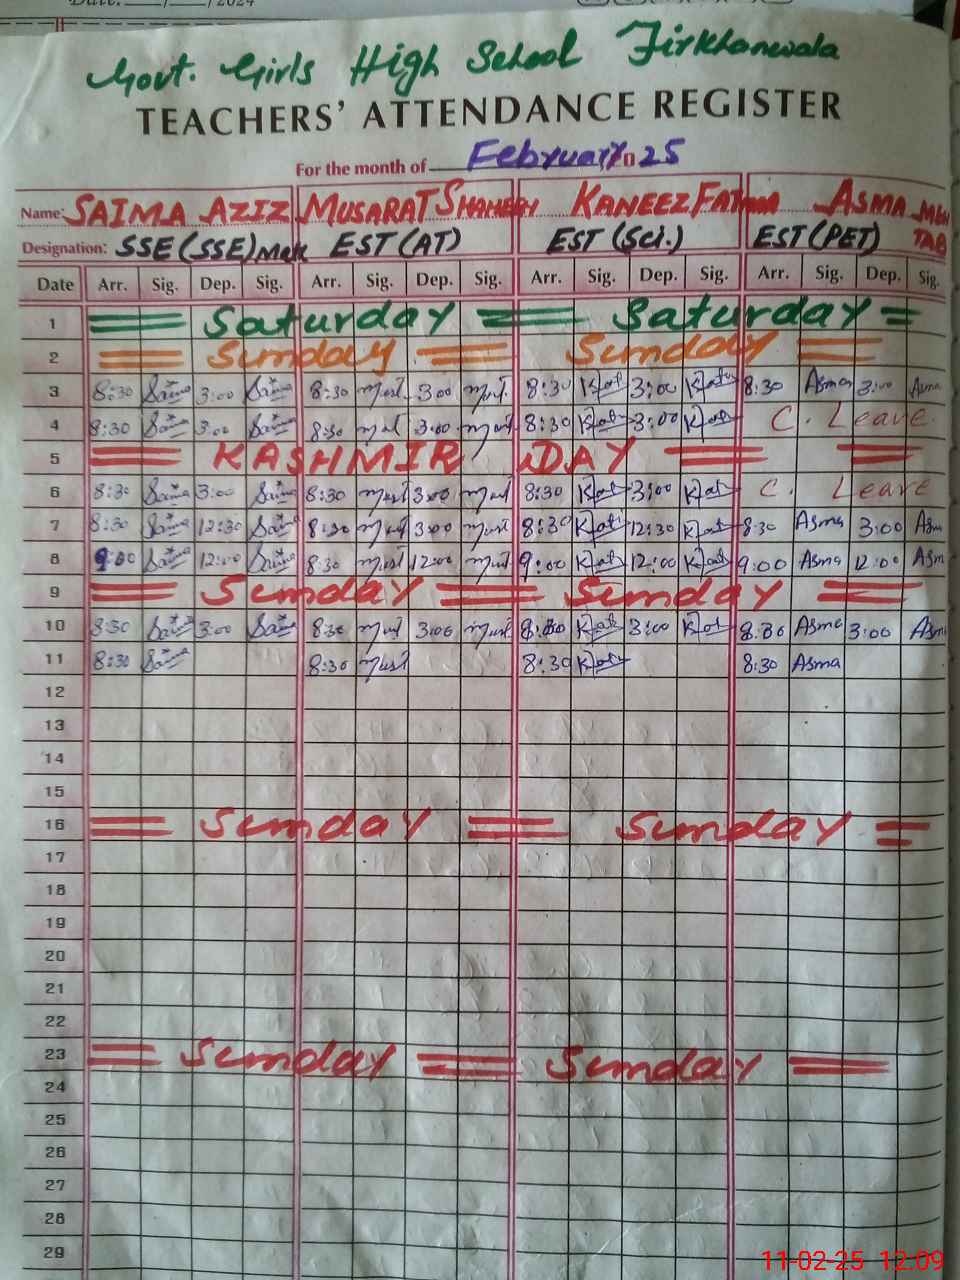 Date: ___/___/2024
Govt. Girls High School Firkhanwala
TEACHERS' ATTENDANCE REGISTER
For the month of February 2025
Name: SAIMA AZIZ MUSARAT SHAHEEN KANEEZ FATIMA ASMA MEH TAB
Designation: SSE (SSE) EST (AT) EST (Sci.) EST (PET)
Date Arr. Sig. Dep. Sig. Arr. Sig. Dep. Sig. Arr. Sig. Dep. Sig. Arr. Sig. Dep. Sig.
1 Saturday Saturday
2 Sunday Sunday
3 8:30 Saima 3:00 Saima 8:30 must 3:00 must 8:30 Kat 3:00 Kat 8:30 Asma 3:00 Asma
4 8:30 Saima 3:00 Saima 8:30 must 3:00 must 8:30 Kat 3:00 Kat C. Leave.
5 KASHMIR DAY
6 8:30 Saima 3:00 Saima 8:30 must 3:00 must 8:30 Kat 3:00 Kat C. Leave
7 8:30 Saima 12:30 Saima 8:30 must 3:00 must 8:30 Kat 12:30 Kat 8:30 Asma 3:00 Asm
8 9:00 Saima 12:00 Saima 8:30 must 12:00 must 9:00 Kat 12:00 Kat 9:00 Asma 12:00 Asm
9 Sunday Sunday
10 8:30 Saima 3:00 Saima 8:30 must 3:00 must 8:30 Kat 3:00 Kat 8:30 Asma 3:00 Asm
11 8:30 Saima 8:30 must 8:30 Kat 8:30 Asma
12
13
14
15
16 Sunday Sunday
17
18
19
20
21
22
23 Sunday Sunday
24
25
26
27
28
29
11-02-25 12:09